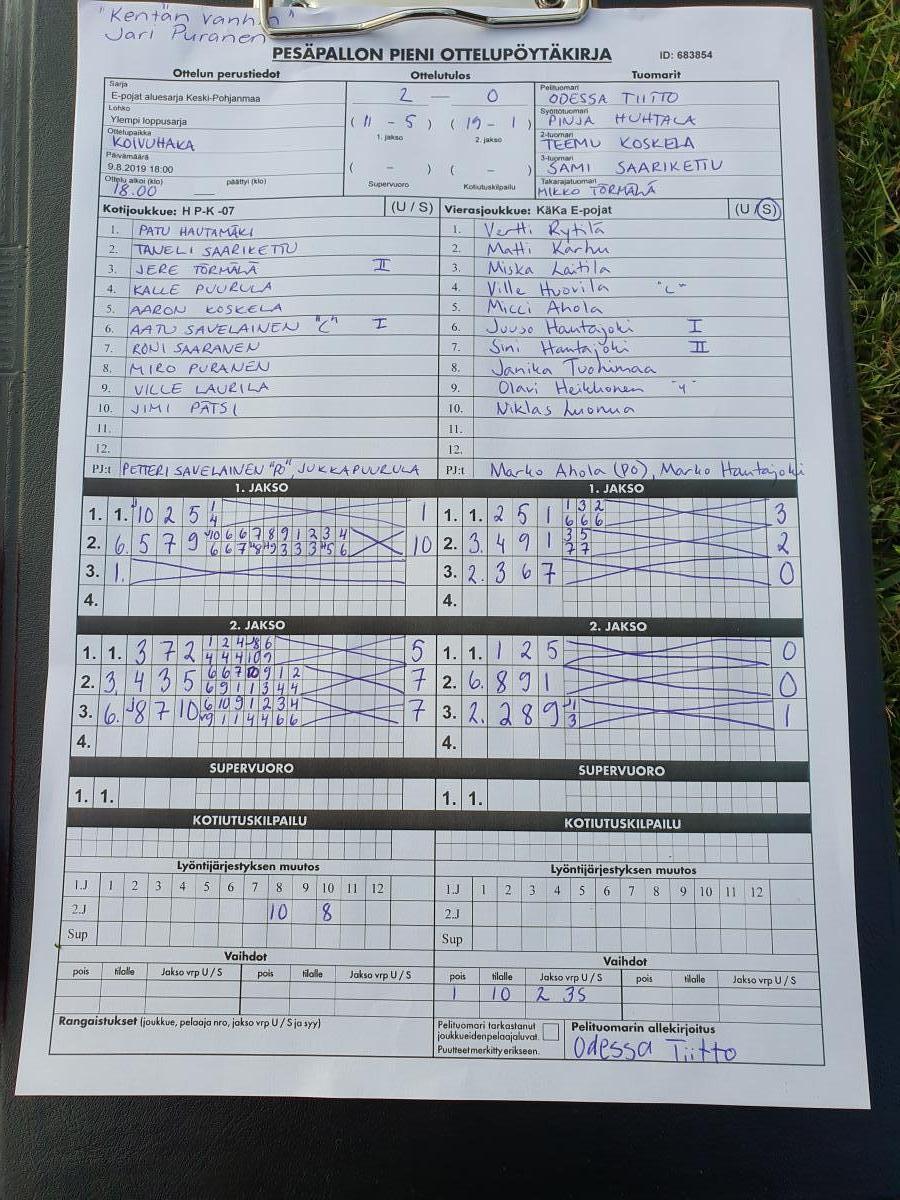 "Kentän vanhin"
Jari Puranen
PESÄPALLON PIENI OTTELUPÖYTÄKIRJA ID: 683854
Ottelun perustiedot Ottelutulos Tuomarit
Sarja
E-pojat aluesarja Keski-Pohjanmaa
Lohko
Ylempi loppusarja
Ottelupaikka
KOIVUHAKA
Päivämäärä
9.8.2019 18:00
Ottelu alkoi (klo) päättyi (klo)
18.00
2 — 0
( 11 - 5 ) ( 19 - 1 )
1. jakso 2. jakso
( - ) ( - )
Supervuoro Kotiutuskilpailu
Pelituomari
ODESSA TIITTO
Syöttötuomari
PINJA HUHTALA
2-tuomari
TEEMU KOSKELA
3-tuomari
SAMI SAARIKETTU
Takarajatuomari
MIKKO TÖRMÄLÄ
Kotijoukkue: H P-K -07 (U / S)
1. PATU HAUTAMÄKI
2. TANELI SAARIKETTU
3. JERE TÖRMÄLÄ II
4. KALLE PUURULA
5. AARON KOSKELA
6. AATU SAVELAINEN "C" I
7. RONI SAARANEN
8. MIRO PURANEN
9. VILLE LAURILA
10. JIMI PÄTSI
11.
12.
PJ:t PETTERI SAVELAINEN "PO" JUKKA PUURULA
Vierasjoukkue: KäKa E-pojat (U / S)
1. Vertti Rytilä
2. Matti Karhu
3. Miska Laitila
4. Ville Huovila "C"
5. Micci Ahola
6. Juuso Hautajoki I
7. Sini Hautajoki II
8. Janika Tuohimaa
9. Olavi Heikkonen
10. Niklas Luoma
11.
12.
PJ:t Marko Ahola (PO), Marko Hautajoki
1. JAKSO
1. 1. 10 2 5 1
4 1
2. 6. 5 7 9 10 6 6 7 8 9 1 2 3 4
6 6 7 8 9 3 3 3 5 6 10
3. 1.
4.
1. JAKSO
1. 1. 2 5 1 1 3 2
6 6 6 3
2. 3. 4 9 1 3 5
7 7 2
3. 2. 3 6 7 0
4.
2. JAKSO
1. 1. 3 7 2 1 2 4 8 6
4 4 4 10 9 5
2. 3. 4 3 5 6 6 7 10 9 1 2
6 9 1 1 3 4 4 7
3. 6. 8 7 10 6 10 9 1 2 3 4
9 1 1 4 4 6 6 7
4.
2. JAKSO
1. 1. 1 2 5 0
2. 6. 8 9 1 0
3. 2. 2 8 9 1
3 1
4.
SUPERVUORO
1. 1.
SUPERVUORO
1. 1.
KOTIUTUSKILPAILU
KOTIUTUSKILPAILU
Lyöntijärjestyksen muutos
1.J 1 2 3 4 5 6 7 8 9 10 11 12
2.J 10 8
Sup
Lyöntijärjestyksen muutos
1.J 1 2 3 4 5 6 7 8 9 10 11 12
2.J
Sup
Vaihdot
pois tilalle Jakso vrp U / S pois tilalle Jakso vrp U / S
Vaihdot
pois tilalle Jakso vrp U / S pois tilalle Jakso vrp U / S
1 10 2 3S
Rangaistukset (joukkue, pelaaja nro, jakso vrp U / S ja syy)
Pelituomari tarkastanut
joukkueiden pelaajaluvat.
Puutteet merkitty erikseen.
Pelituomarin allekirjoitus
Odessa Tiitto